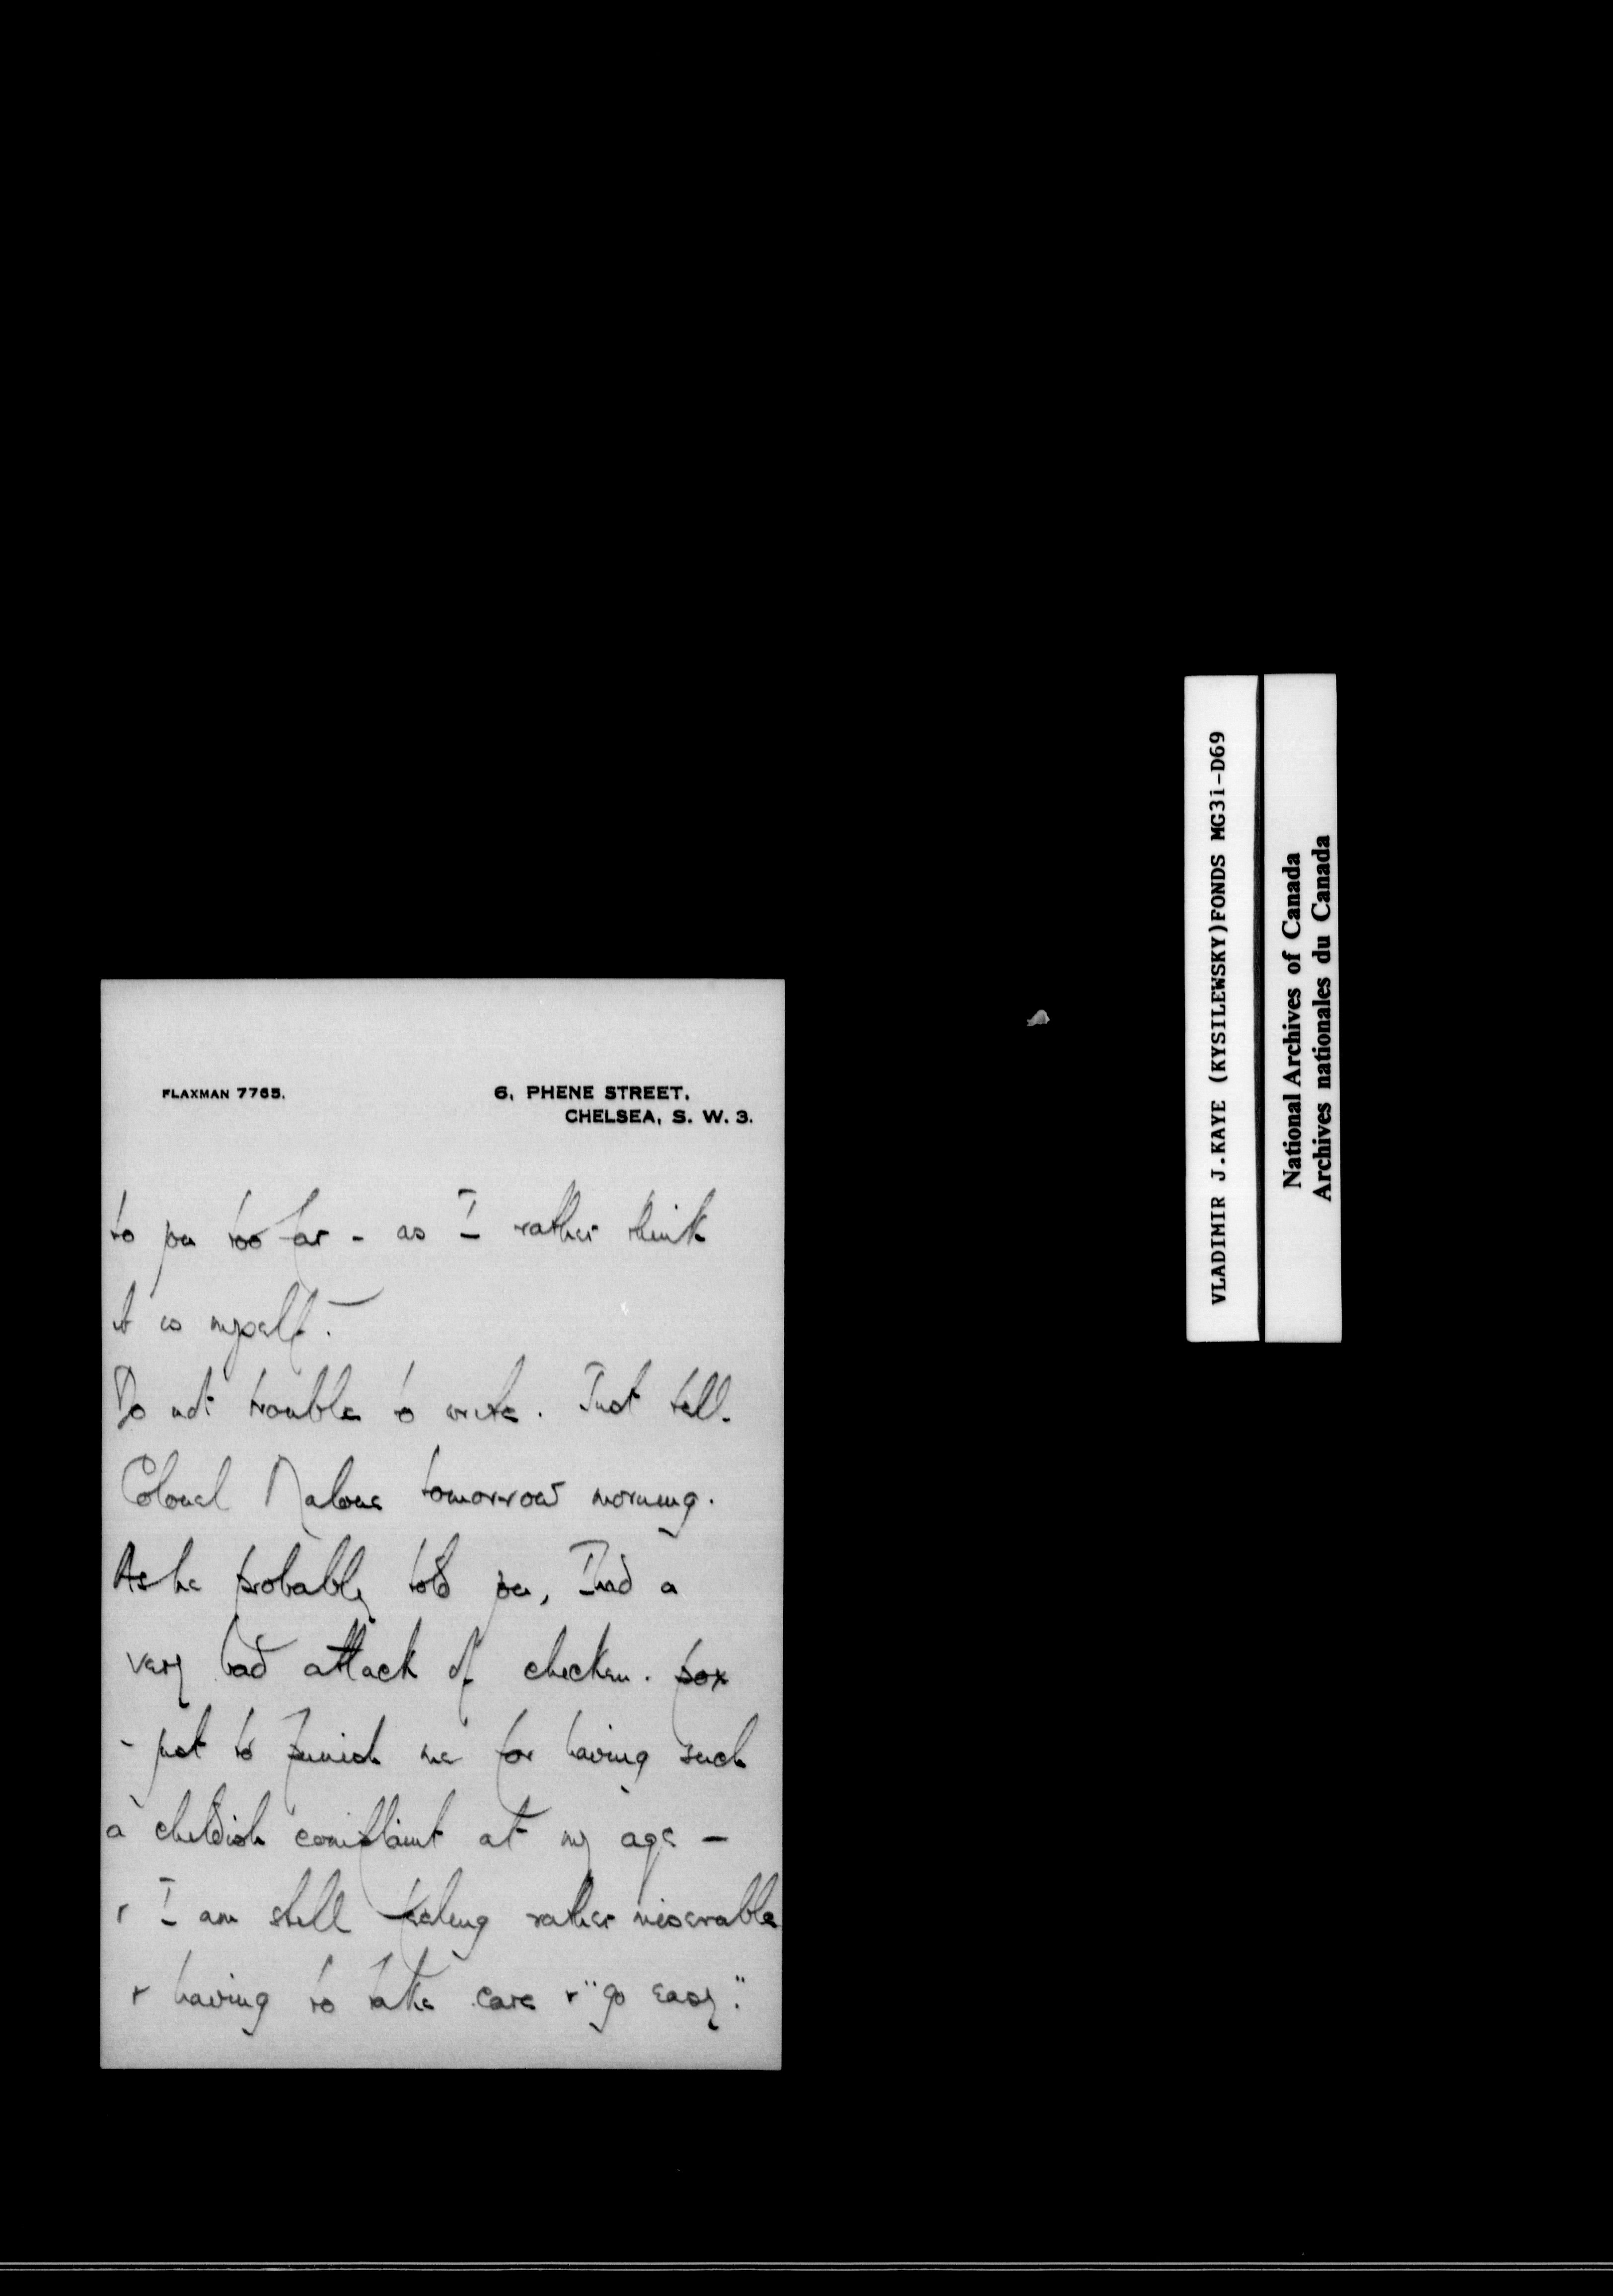 FLAXMAN 7765.
6, PHENE STREET,
CHELSEA, S. W. 3.
to you too far - as I rather think
it is myself.
Do not trouble to write. Just tell
Colonel Malone tomorrow morning.
As he probably told you, I had a
very bad attack of chicken-pox
- just to punish me for having such
a childish complaint at my age -
+ I am still feeling rather miserable
+ having to take care + "go easy".
VLADIMIR J.KAYE (KYSILEWSKY)FONDS MG31-D69
National Archives of Canada
Archives nationales du Canada